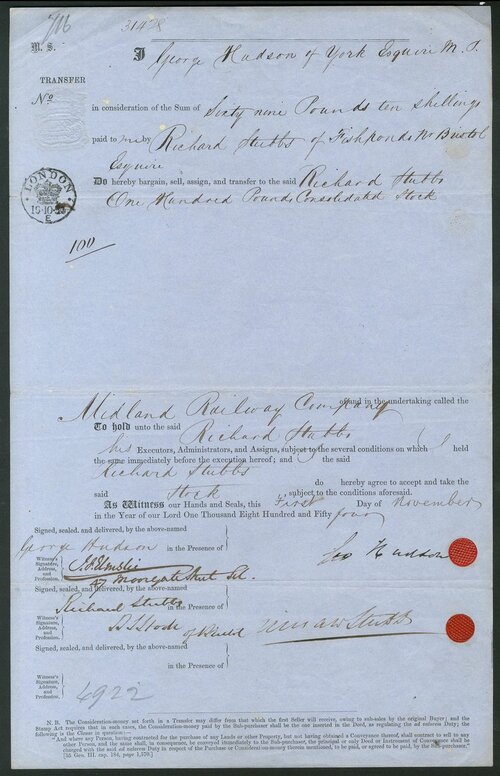 31428
M. S.
I George Hudson of York Esquire M.P.
TRANSFER
No
in consideration of the Sum of Sixty nine Pounds ten shillings
paid to me by Richard Stubbs of Fishponds Nr Bristol
Esquire
LONDON
E
Do hereby bargain, sell, assign, and transfer to the said Richard Stubbs
One Hundred Pounds Consolidated Stock
100
of and in the undertaking called the
Midland Railway Company
To hold unto the said Richard Stubbs
his Executors, Administrators, and Assigns, subject to the several conditions on which I held
the same immediately before the execution hereof; and I the said
Richard Stubbs
do hereby agree to accept and take the
said Stock , subject to the conditions aforesaid.
As Witness our Hands and Seals, this First Day of November
in the Year of our Lord One Thousand Eight Hundred and Fifty four
Signed, sealed, and delivered, by the above-named
George Hudson in the Presence of
Geo Hudson
Witness's Signature, Address, and Profession.
47 Moorgate Street
Signed, sealed, and delivered, by the above-named
Richard Stubbs
Witness's Signature, Address, and Profession.
Signed, sealed, and delivered, by the above-named
in the Presence of
Witness's Signature, Address, and Profession.
4922
N. B. The Consideration-money set forth in a Transfer may differ from that which the first Seller will receive, owing to sub-sales by the original Buyer; and the
Stamp Act requires that in such cases, the Consideration-money paid by the Sub-purchaser shall be the one inserted in the Deed, as regulating the ad valorem Duty; the
following is the Clause in question:—
"And where any Person, having contracted for the purchase of any Lands or other Property, but not having obtained a Conveyance thereof, shall contract to sell to any
other Person, and the same shall, in consequence, be conveyed immediately to the Sub-purchaser, the principal or only Deed or Instrument of Conveyance shall be
charged with the said ad valorem Duty in respect of the Purchase or Consideration-money therein mentioned, to be paid, or agreed to be paid, by the Sub-purchaser."
[55 Geo. III. cap. 184, page 1,570.]